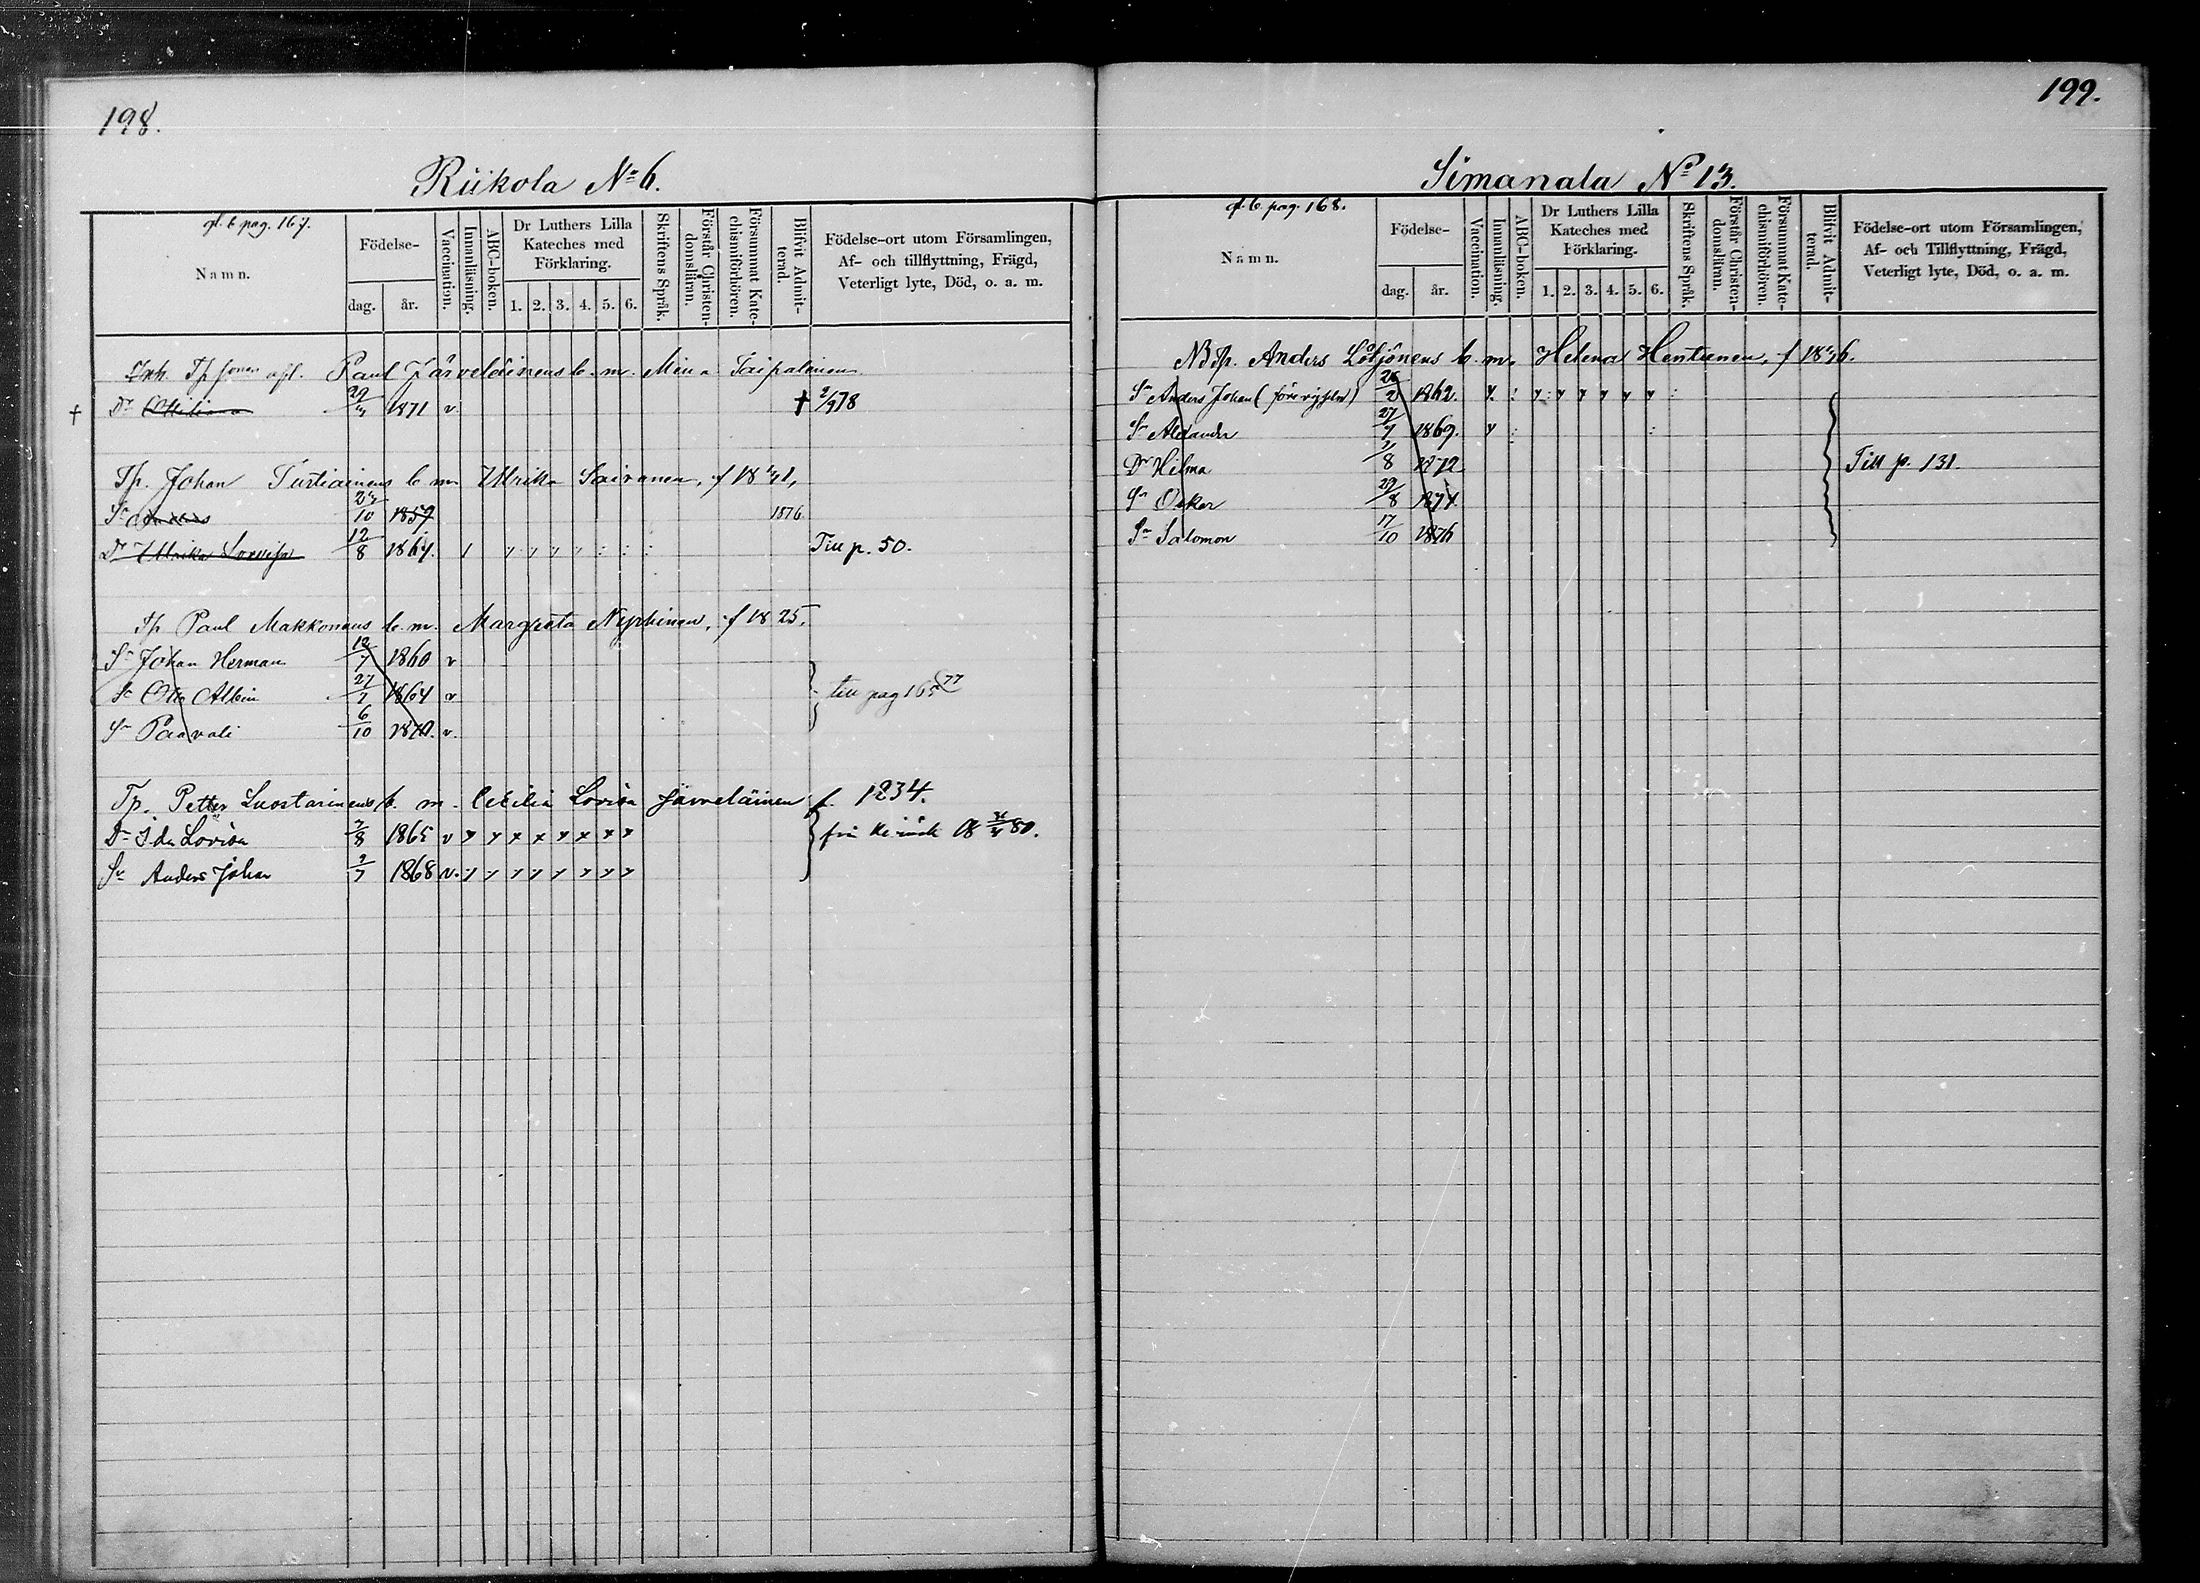 198.
Riikola No 6.
gl. b. pag. 167.
Namn.
Födelse-
dag.
år.
Vaccination.
Innanläsning.
ABC-boken.
Dr Luthers Lilla Kateches med Förklaring.
1. 2. 3. 4. 5. 6.
Skriftens Språk.
Förstår Christendomsläran.
Försummat Katechismiförhören.
Blifvit Admitterad.
Födelse-ort utom Församlingen,
Af- och tillflyttning, Frägd,
Veterligt lyte, Död, o. a. m.
Inh. Tp sonen afl. Paul Järveläinens b. m. Mina Taipalinen
† Dr Ottiliana 1871 v † 2/9 78
Tp. Johan Turtiainens b. m. Ulrika Sairanen, f 18 21,
Sn 10 1859 1876
Dr Ulrika Lovisa 12/8 1864. Till p. 50.
Tp Paul Makkonens b. m. Margreta Nyphinen, f 18 25.
Sn Johan Herman 12/7 1860 v
Sn Otto Albin 27/7 1864 v till pag 165 77
Sn Paavali 6/10 1870. v.
Tp. Petter Luostarinens b. m. Cecilia Lovisa Järveläinen f. 1834.
Dr Ida Lovisa 7/8 1865 v y y x x y x x y från 18 80.
Sn Anders Johan 2/7 1868 v. y y y y y y y y
199.
Simanala No 13.
gl. b. pag. 168.
Namn.
Födelse-
dag.
år.
Vaccination.
Innanläsning.
ABC-boken.
Dr Luthers Lilla Kateches med Förklaring.
1. 2. 3. 4. 5. 6.
Skriftens Språk.
Förstår Christendomsläran.
Försummat Katechismiförhören.
Blifvit Admitterad.
Födelse-ort utom Församlingen,
Af- och Tillflyttning, Frägd,
Veterligt lyte, Död, o. a. m.
Anders Lötjönens b. m. Helena Hentunen, f 18 36.
Sn Anders Johan 1862.
Sn Alexander 27/7 1869.
Dr Hilma 8 1872 Till p. 131.
Sn Oskar 29/8 1874.
Sn Salomon 17/10 1876